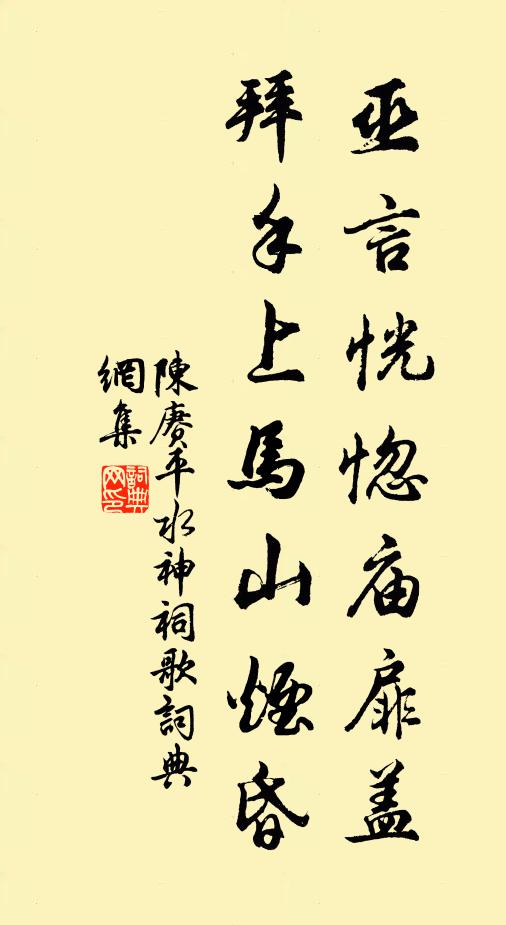 巫言恍惚庙扉盖
拜手上馬山煙昏
陳賡平水神祠歌詞典
網集
詞典
网印